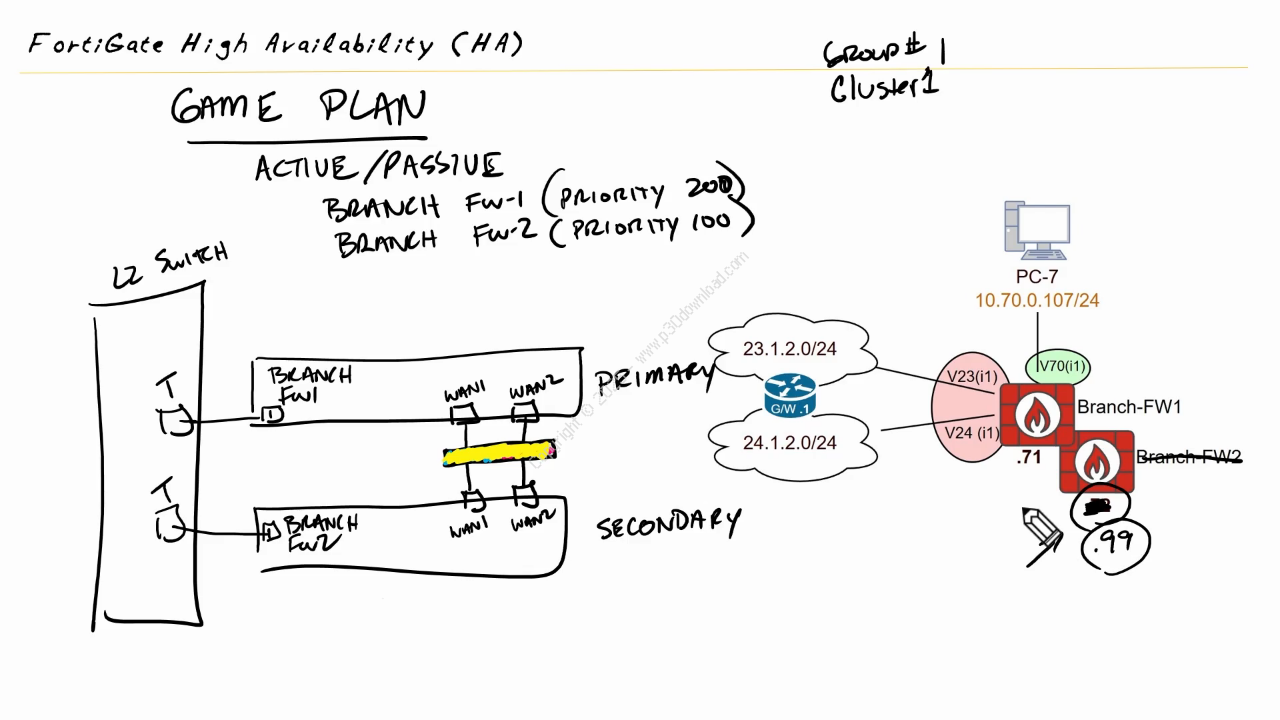 FortiGate High Availability (HA)
GROUP# 1
Cluster1
GAME PLAN
ACTIVE/PASSIVE
BRANCH FW-1 (PRIORITY 200)
BRANCH FW-2 (PRIORITY 100)
L2 SWITCH
T
BRANCH
FW1
1
WAN1 WAN2
PRIMARY
T
1
BRANCH
FW2
WAN1 WAN2
SECONDARY
www.p30download.com
PC-7
10.70.0.107/24
23.1.2.0/24
G/W .1
24.1.2.0/24
V70(i1)
V23(i1)
V24 (i1)
Branch-FW1
.71
Branch-FW2
.99